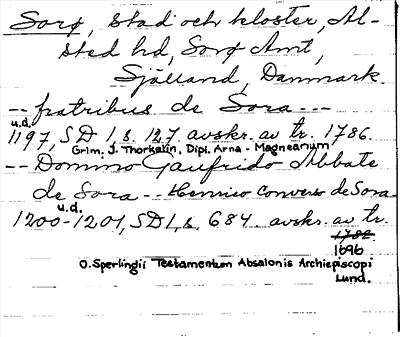 Sorø, stad och kloster, Al-
sted hd, Sorø Amt,
Sjælland, Danmark.
-- fratribus de Sora ---
u.d.
1197, SD 1, s. 127. avskr. av tr. 1786.
Grim. J. Thorkelin, Dipl. Arna-Magnæanum
-- Domino Gaufrido Abbate
de Sora -- Henrico Converso de Sora
u.d.
1200-1201, SD 1, s. 684. avskr. av tr.
1696
O. Sperlingii Testamentum Absalonis Archiepiscopi
Lund.